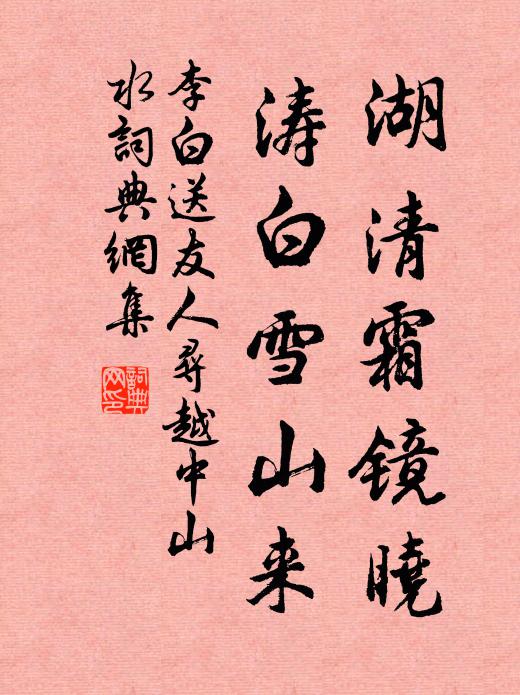 湖清霜镜曉
涛白雪山来
李白送友人尋越中山
水詞典網集
詞典
网印